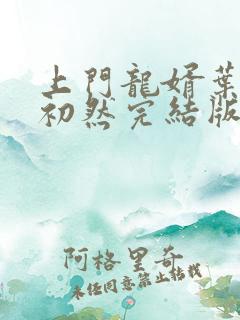 上門龍婿葉
初然完結版
阿格里奇
未經同意禁止拮捝